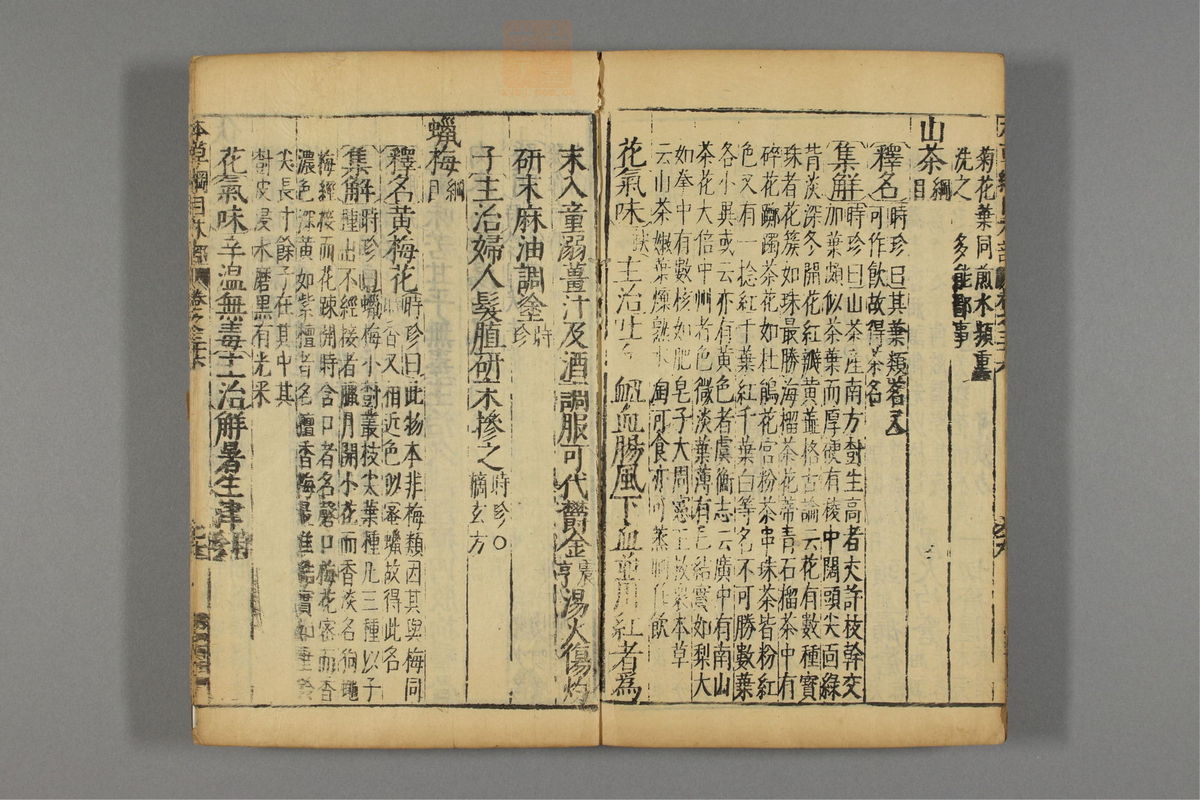 菊花葉同煎水頻熏
洗之 多能鄙事
山茶綱目
釋名時珍曰其葉類茗又可作飲故得茶名
集解時珍曰山茶產南方樹生高者丈許枝幹交加葉頗似茶葉而厚硬有稜中闊頭尖面綠
背淡深冬開花紅瓣黃蕋格古論云花有數種寶
珠者花簇如珠最勝海榴茶花蒂青石榴茶中有
碎花躑躅茶花如杜鵑花宮粉茶串珠茶皆粉紅
色又有一捻紅千葉紅千葉白等名不可勝數葉
各小異或云亦有黃色者虞衡志云廣中有南山
茶花大倍中州者色微淡葉薄有毛結實如梨大
如拳中有數核如肥皂子大周憲王救荒本草
云山茶嫩葉煠熟水淘可食亦可蒸晒作飲
花氣味缺主治吐血衄血腸風下血並用紅者為
末入童溺薑汁及酒調服可代鬱金震亨湯火傷灼
研末麻油調塗時珍
子主治婦人髮䐈研末摻之時珍○摘玄方
蠟梅綱目
釋名黃梅花時珍曰此物本非梅類因其與梅同時香又相近色似蜜蠟故得此名
集解時珍曰蠟梅小樹叢枝尖葉種凡三種以子種出不經接者臘月開小花而香淡名狗蠅
梅經接而花疎開時含口者名磬口梅花密而香
濃色深黃如紫檀者名檀香梅最佳結實如垂鈴
尖長寸餘子在其中其
樹皮浸水磨黑有光采
花氣味辛溫無毒主治解暑生津時珍